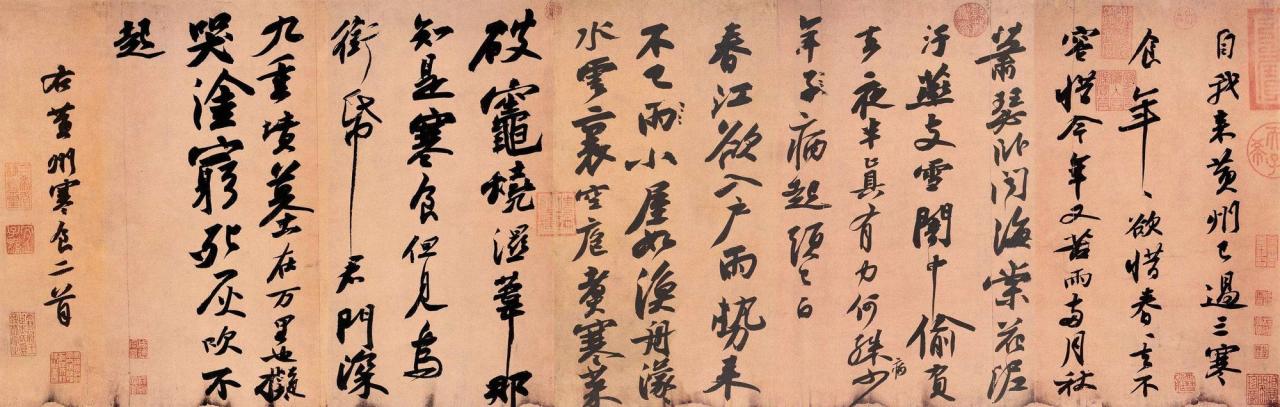 自我来黄州已過三寒
食年〻欲惜春〻去不
容惜今年又苦雨兩月秋
蕭瑟卧聞海棠花泥
汙燕支雪闇中偷負
去夜半真有力何殊病少
年子病起頭已白
春江欲入戶雨勢来
不已雨小屋如漁舟濛〻
水雲裏空庖煑寒菜
破竈燒濕葦那
知是寒食但見烏
銜帋君門深
九重墳墓在万里也擬
哭塗窮死灰吹不
起
右黄州寒食二首